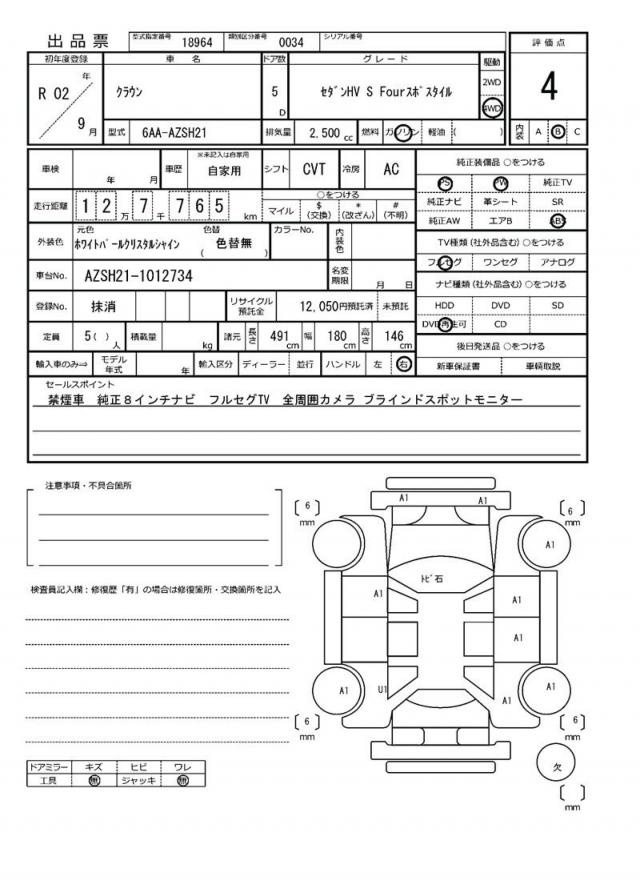 出品票 型式指定番号 18964 類別区分番号 0034 シリアル番号
評価点
4
内装 A B C
初年度登録 車名 ドア数 グレード 駆動
R 02 年 9 月
クラウン 5 D セダンHV S Fourスポスタイル 2WD 4WD
型式 6AA-AZSH21 排気量 2,500 cc 燃料 ガソリン 軽油 ( )
車検 年 月 車歴 ※未記入は自家用 自家用 シフト CVT 冷房 AC
走行距離 1 2 万 7 千 7 6 5 km
○をつける
マイル $(交換) *(改ざん) #(不明)
外装色 元色 ホワイトパールクリスタルシャイン 色替 ( 色替無 ) カラーNo. 内装色
車台No. AZSH21-1012734 名変期限 月 日
登録No. 抹消 リサイクル預託金 12,050円預託済 未預託
定員 5( ) 人 積載量 kg 諸元 長さ 491 cm 幅 180 cm 高さ 146 cm
輸入車のみ⇒ モデル年式 年 輸入区分 ディーラー 並行 ハンドル 左 右
純正装備品 ○をつける
PS PW 純正TV
純正ナビ 革シート SR
純正AW エアB ABS
TV種類(社外品含む)○をつける
フルセグ ワンセグ アナログ
ナビ種類(社外品含む)○をつける
HDD DVD SD
DVD再生可 CD
後日発送品 ○をつける
新車保証書 車輌取説
セールスポイント
禁煙車 純正8インチナビ フルセグTV 全周囲カメラ ブラインドスポットモニター
注意事項・不具合箇所
検査員記入欄:修復歴「有」の場合は修復箇所・交換箇所を記入
ドアミラー キズ ヒビ ワレ
工具 無 ジャッキ 無
A1 A1
6 mm
6 mm
A1
トビ石
A1 A1
A1
A1 U1 A1 A1
6 mm
6 mm
欠
mm